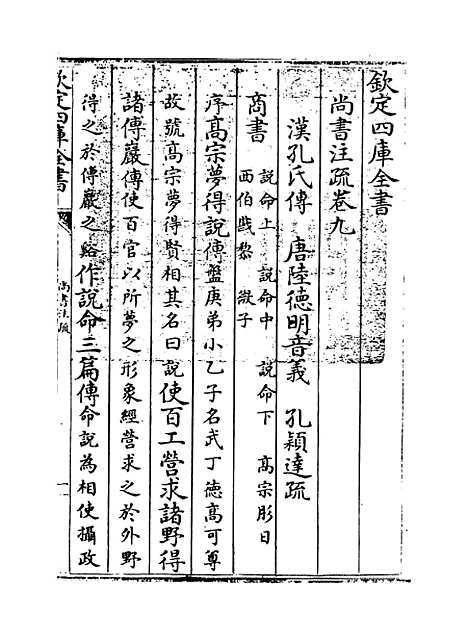 欽定四庫全書
尚書注疏卷九
漢孔氏傳 唐陸德明音義 孔穎達疏
商書 說命上 說命中 說命下 高宗肜日
西伯戡黎 微子
序高宗夢得說傳盤庚弟小乙子名武丁德高可尊
故號高宗夢得賢相其名曰說使百工營求諸野得
諸傅巖傳使百官以所夢之形象經營求之於外野
得之於傅巖之谿作說命三篇傳命說為相使攝政
欽定四庫全書
尚書注疏
一